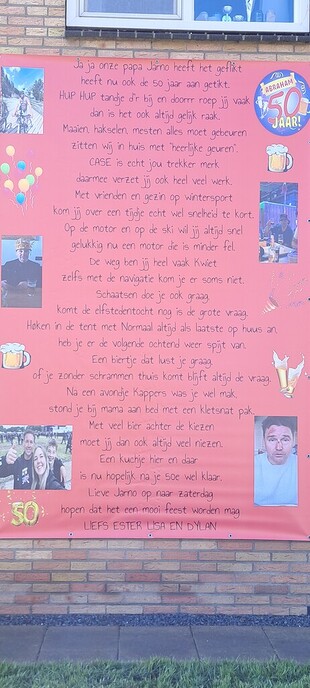 Ja ja onze papa Jarno heeft het geflikt
heeft nu ook de 50 jaar aan getikt.
HUP HUP tandje d'r bij en doorrr roep jij vaak
dan is het ook altijd gelijk raak.
Maaien, hakselen, mesten alles moet gebeuren
zitten wij in huis met "heerlijke geuren".
CASE is echt jou trekker merk
daarmee verzet jij ook heel veel werk.
Met vrienden en gezin op wintersport
kom jij over een tijdje echt wel snelheid te kort.
Op de motor en op de ski wil jij altijd snel
gelukkig nu een motor die is minder fel.
De weg ben jij heel vaak Kwiet
zelfs met de navigatie kom je er soms niet.
Schaatsen doe je ook graag,
komt de elfstedentocht nog is de grote vraag.
Høken in de tent met Normaal altijd als laatste op huus an,
heb je er de volgende ochtend weer spijt van.
Een biertje dat lust je graag,
of je zonder schrammen thuis komt blijft altijd de vraag.
Na een avondje Kappers was je wel mak,
stond je bij mama aan bed met een kletsnat pak.
Met veel bier achter de kiezen
moet jij dan ook altijd veel niezen.
Een kuchje hier en daar
is nu hopelijk na je 50e wel klaar.
Lieve Jarno op naar zaterdag
hopen dat het een mooi feest worden mag.
LIEFS ESTER LISA EN DYLAN
ABRAHAM
50
JAAR!
50